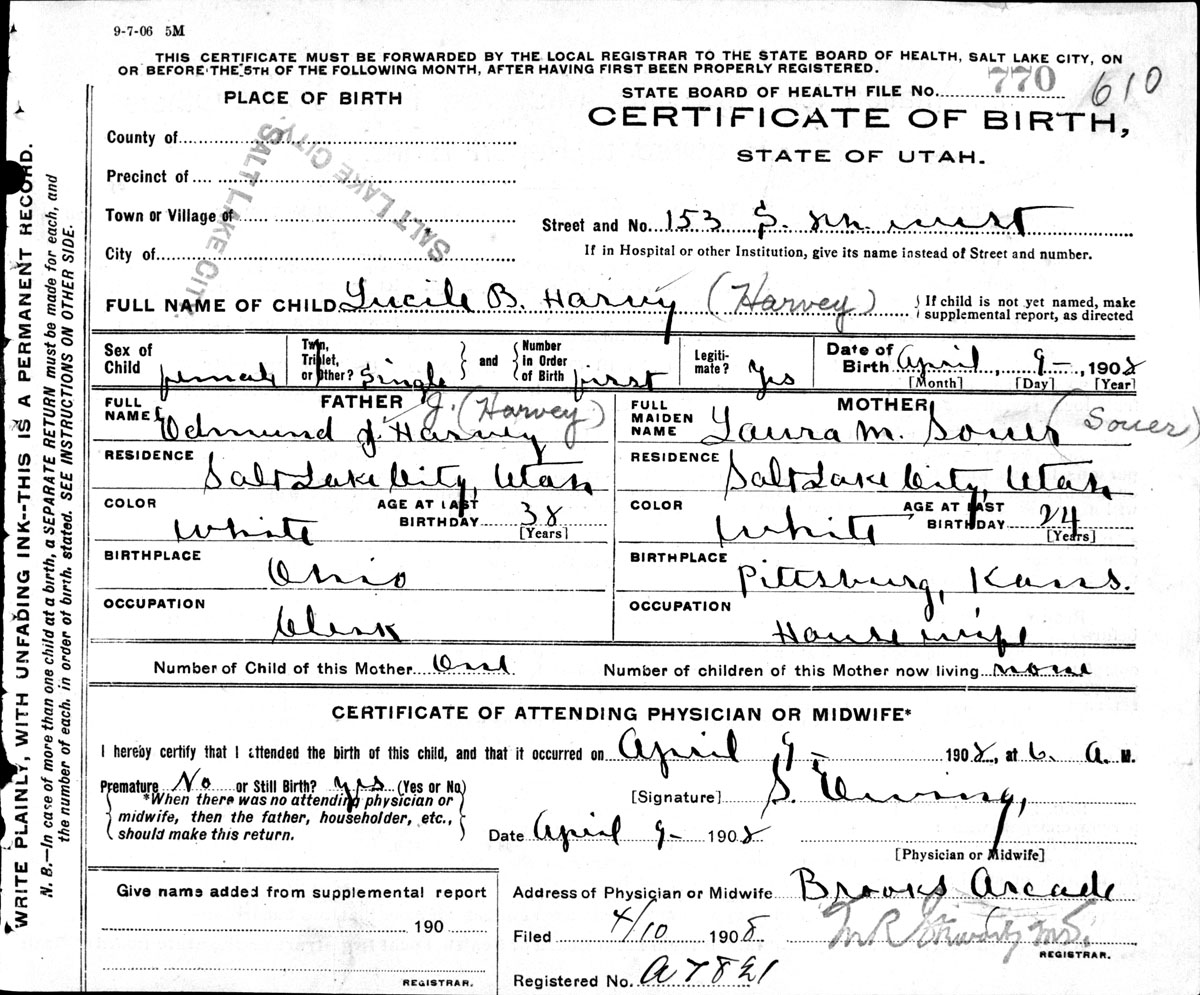 9-7-06 5M
THIS CERTIFICATE MUST BE FORWARDED BY THE LOCAL REGISTRAR TO THE STATE BOARD OF HEALTH, SALT LAKE CITY, ON
OR BEFORE THE 5TH OF THE FOLLOWING MONTH, AFTER HAVING FIRST BEEN PROPERLY REGISTERED.
PLACE OF BIRTH
STATE BOARD OF HEALTH FILE No. 770 610
CERTIFICATE OF BIRTH,
STATE OF UTAH.
County of
Precinct of
Town or Village of
City of
SALT LAKE CITY.
SALT LAKE CITY.
Street and No. 153 S.
If in Hospital or other Institution, give its name instead of Street and number.
FULL NAME OF CHILD Lucile B. Harvy (Harvey) If child is not yet named, make
supplemental report, as directed
Sex of Child female
Twin, Triplet, or Other? Single and Number in Order of Birth first
Legiti-mate? Yes
Date of Birth April 9-, 1908
[Month] [Day] [Year]
FATHER
FULL NAME Edmund J. Harvey J. (Harvey)
MOTHER
FULL MAIDEN NAME Laura M. Souer (Souer)
RESIDENCE Salt Lake City, Utah
RESIDENCE Salt Lake City, Utah
COLOR White AGE AT LAST BIRTHDAY 38 [Years]
COLOR White AGE AT LAST BIRTHDAY 24 [Years]
BIRTHPLACE Ohio
BIRTHPLACE Pittsburg, Kans.
OCCUPATION Clerk
OCCUPATION Housewife
Number of Child of this Mother One
Number of children of this Mother now living none
CERTIFICATE OF ATTENDING PHYSICIAN OR MIDWIFE*
I hereby certify that I attended the birth of this child, and that it occurred on April 9- 1908, at 6. A. M.
Premature No or Still Birth? yes (Yes or No)
*When there was no attending physician or
midwife, then the father, householder, etc.,
should make this return.
[Signature] S. Ewing,
Date April 9- 1908
[Physician or Midwife]
Give name added from supplemental report
190
REGISTRAR.
Address of Physician or Midwife Brooks Arcade
Filed 4/10 1908
M.R. M.D.
REGISTRAR.
Registered No. A7821
WRITE PLAINLY, WITH UNFADING INK--THIS IS A PERMANENT RECORD.
N. B.—In case of more than one child at a birth, a SEPARATE RETURN must be made for each, and
the number of each, in order of birth, stated. SEE INSTRUCTIONS ON OTHER SIDE.